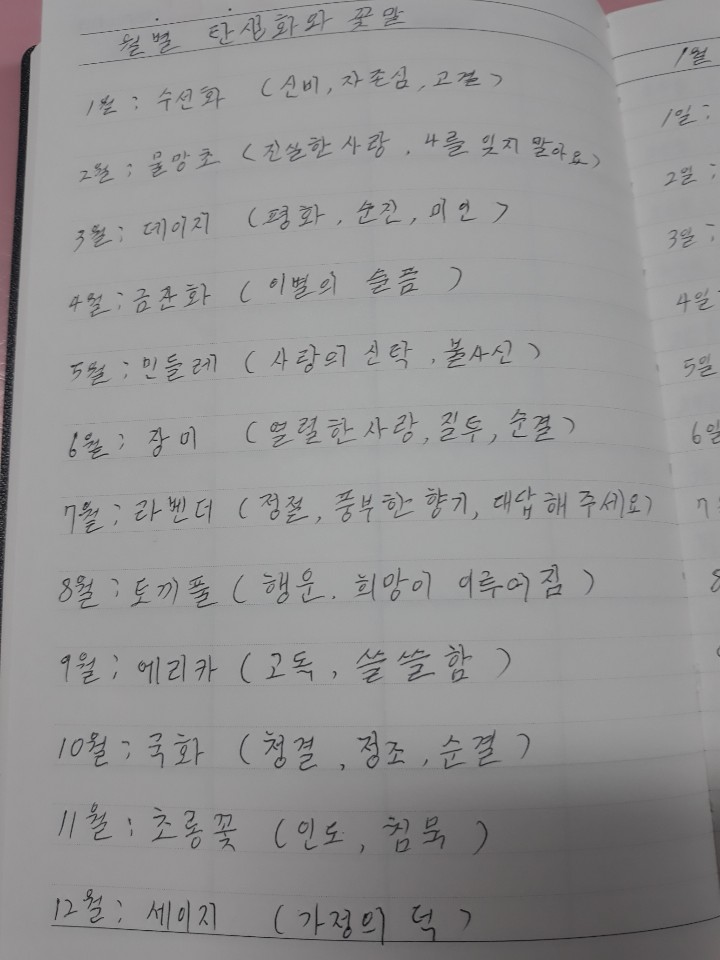 월별 탄생화와 꽃말
1월 : 수선화 (신비, 자존심, 고결)
2월 : 물망초 (진실한 사랑, 나를 잊지 말아요)
3월 : 데이지 (평화, 순진, 미인)
4월 : 금잔화 (이별의 슬픔)
5월 : 민들레 (사랑의 신탁, 불사신)
6월 : 장미 (열렬한 사랑, 질투, 순결)
7월 : 라벤더 (정절, 풍부한 향기, 대답해 주세요)
8월 : 토끼풀 (행운. 희망이 이루어짐)
9월 : 에리카 (고독, 쓸쓸함)
10월 : 국화 (청결, 정조, 순결)
11월 : 초롱꽃 (인도, 침묵)
12월 : 세이지 (가정의 덕)
1월
1일 :
2일 :
3일 :
4일
5일
6일
7
8